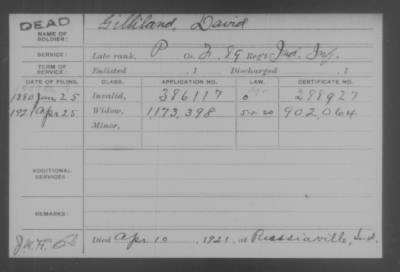 DEAD
NAME OF SOLDIER: Gilliland, David
SERVICE: Late rank, P Co. F, 89 Reg't Ind. Inf.
TERM OF SERVICE: Enlisted , 1 Discharged , 1
DATE OF FILING. CLASS. APPLICATION NO. LAW. CERTIFICATE NO.
1880 Jan 25 Invalid, 386117 288927
1921 Apr 25 Widow, 1,173,398 5-1-20 902,064
Minor,
ADDITIONAL SERVICES:
REMARKS:
Died Apr 10 , 1921, at Russiaville, Ind.